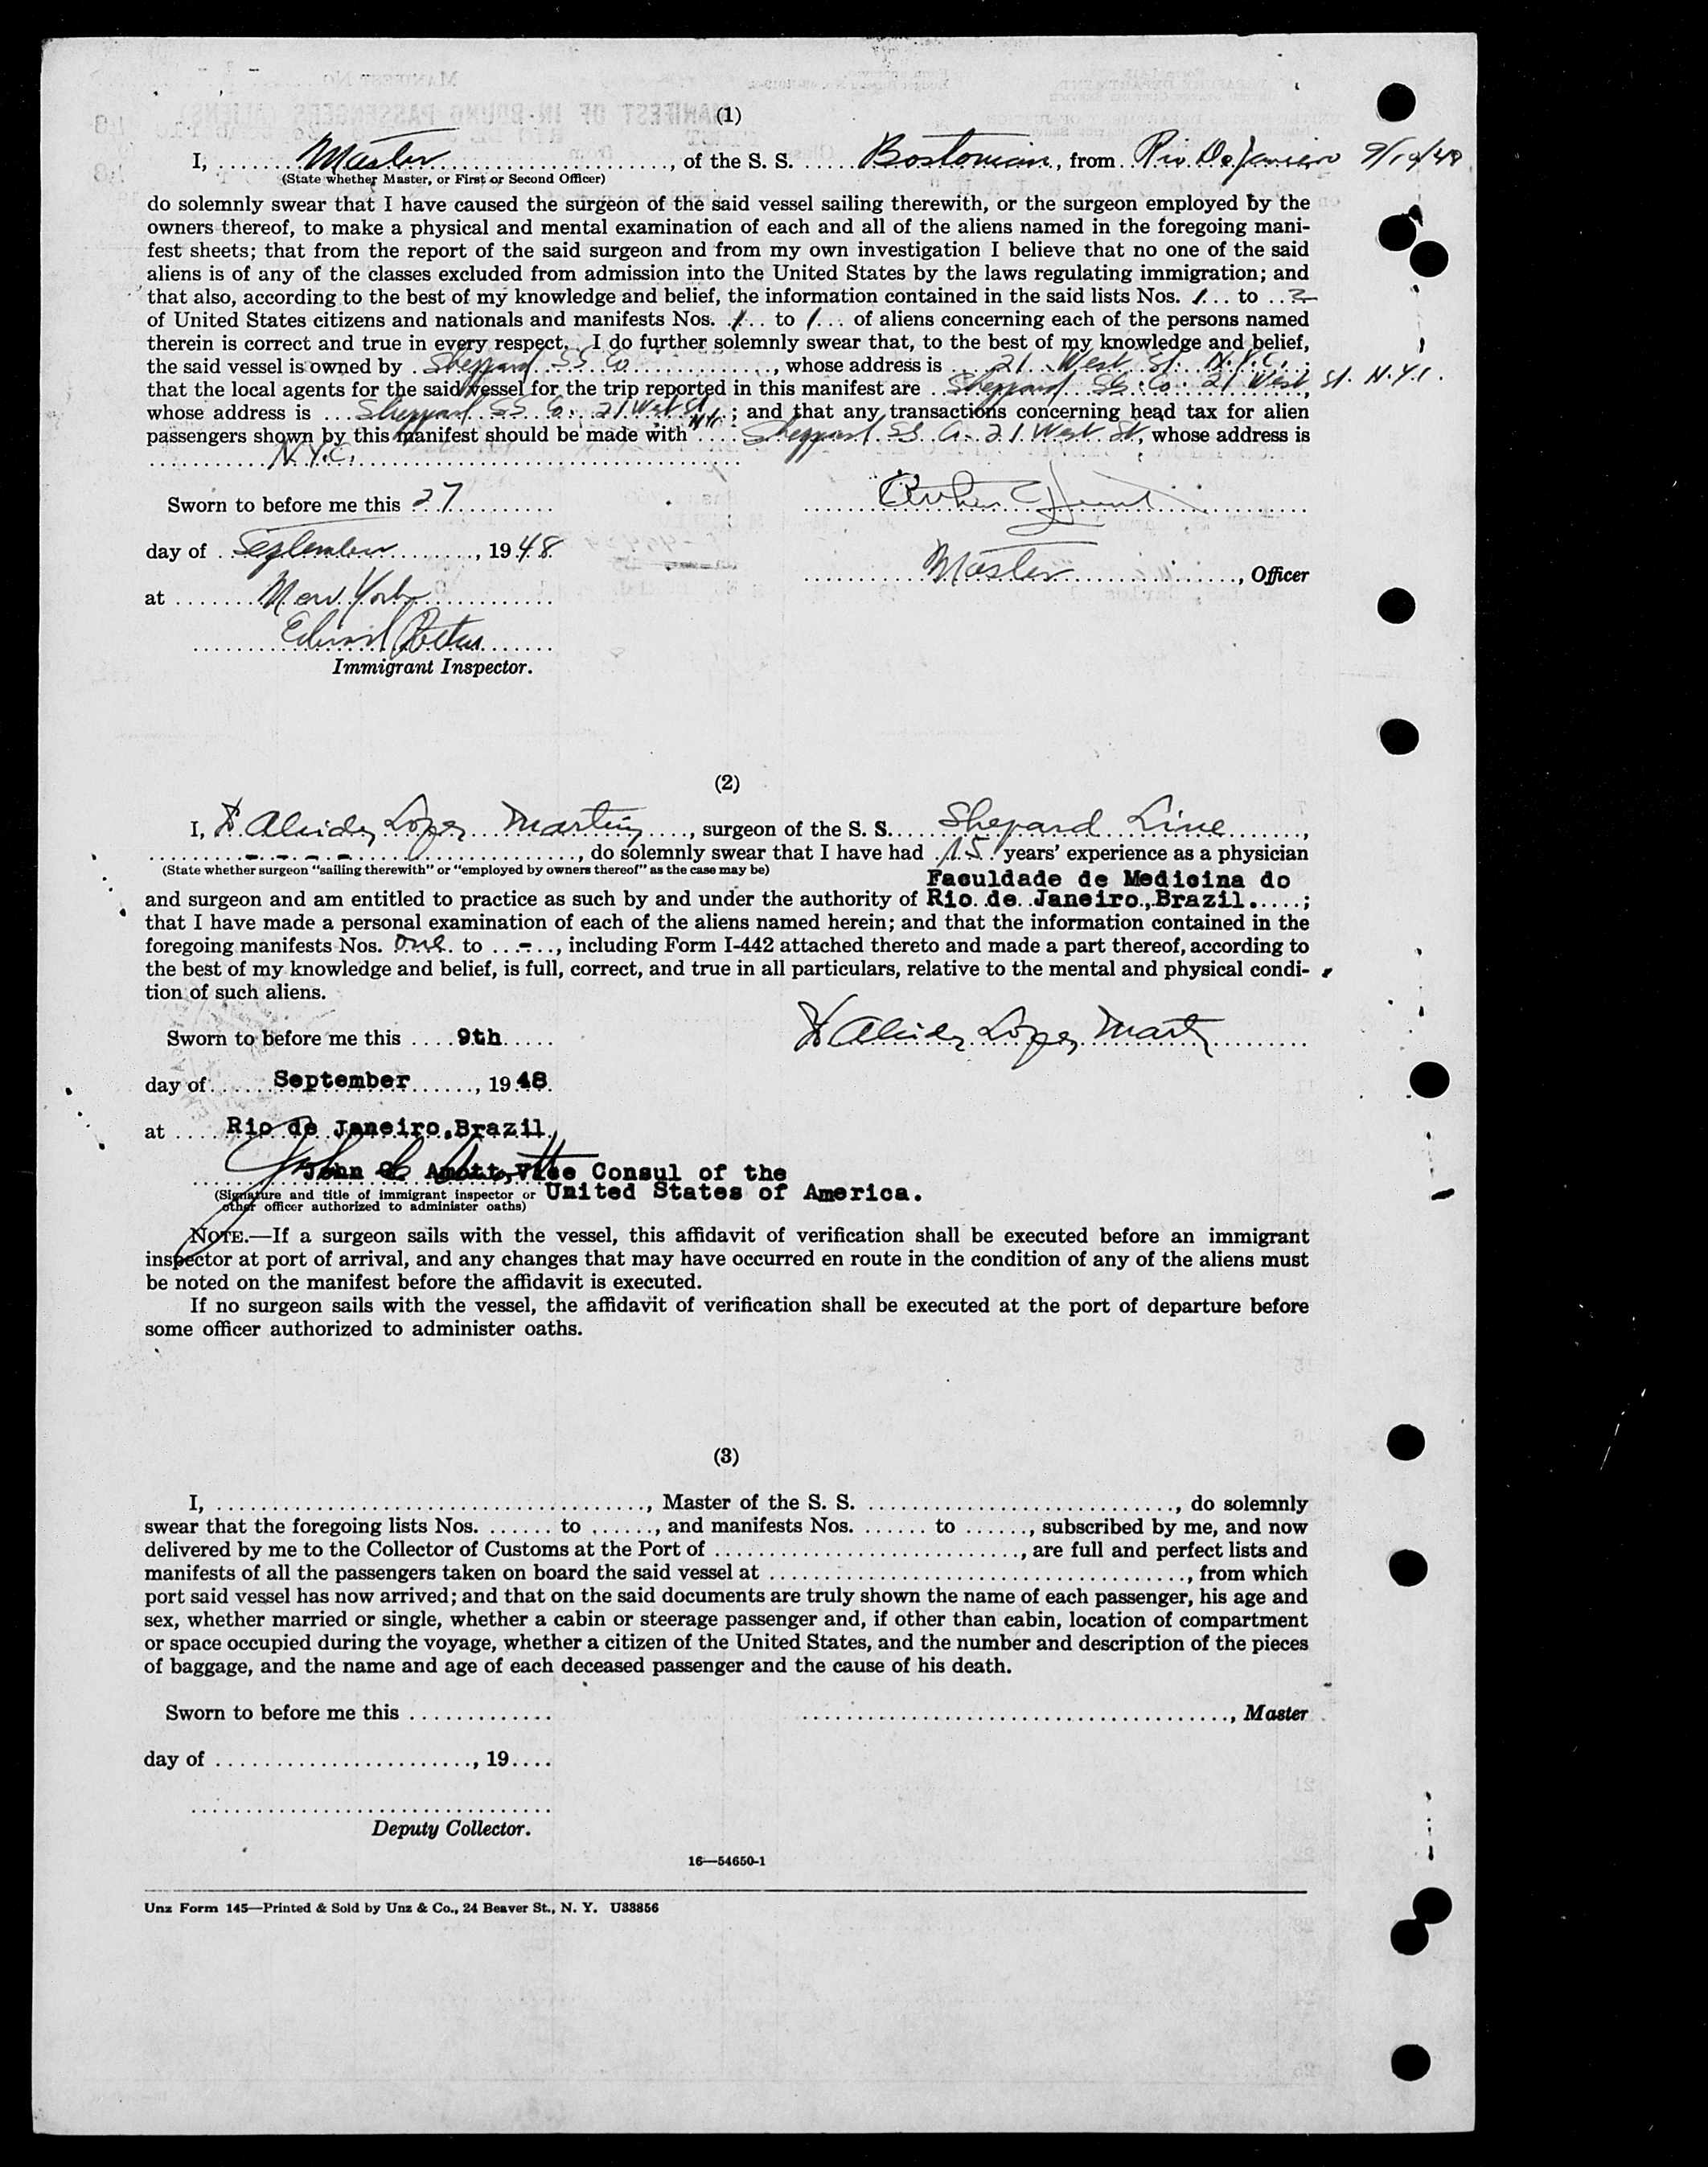 (1)
I, Master, of the S. S. Bostonian, from Rio De Janeiro
(State whether Master, or First or Second Officer)
do solemnly swear that I have caused the surgeon of the said vessel sailing therewith, or the surgeon employed by the
owners thereof, to make a physical and mental examination of each and all of the aliens named in the foregoing mani-
fest sheets; that from the report of the said surgeon and from my own investigation I believe that no one of the said
aliens is of any of the classes excluded from admission into the United States by the laws regulating immigration; and
that also, according to the best of my knowledge and belief, the information contained in the said lists Nos. 1 to 2
of United States citizens and nationals and manifests Nos. 1 to 1 of aliens concerning each of the persons named
therein is correct and true in every respect. I do further solemnly swear that, to the best of my knowledge and belief,
the said vessel is owned by Sheppard SS Co, whose address is 21 West St. N.Y.C.
that the local agents for the said vessel for the trip reported in this manifest are Sheppard SS. Co. 21 West St. N.Y.C.,
whose address is Sheppard SS Co. 21 West St. N.Y.C.; and that any transactions concerning head tax for alien
passengers shown by this manifest should be made with Sheppard SS Co. 21 West St, whose address is
N.Y.C.
Sworn to before me this 27
day of September, 1948
Master, Officer
at New York
Immigrant Inspector.
(2)
I, Dr Alcides Lopes Martins, surgeon of the S. S. Shepard Line,
- - - -, do solemnly swear that I have had 15 years' experience as a physician
(State whether surgeon "sailing therewith" or "employed by owners thereof" as the case may be)
Faculdade de Medicina do
and surgeon and am entitled to practice as such by and under the authority of Rio de Janeiro, Brazil.;
that I have made a personal examination of each of the aliens named herein; and that the information contained in the
foregoing manifests Nos. one to -, including Form I-442 attached thereto and made a part thereof, according to
the best of my knowledge and belief, is full, correct, and true in all particulars, relative to the mental and physical condi-
tion of such aliens.
Sworn to before me this 9th
Dr Alcides Lopes Martins
day of September, 1948.
at Rio de Janeiro, Brazil,
John C. Amott, Vice Consul of the
(Signature and title of immigrant inspector or United States of America.
other officer authorized to administer oaths)
NOTE.—If a surgeon sails with the vessel, this affidavit of verification shall be executed before an immigrant
inspector at port of arrival, and any changes that may have occurred en route in the condition of any of the aliens must
be noted on the manifest before the affidavit is executed.
If no surgeon sails with the vessel, the affidavit of verification shall be executed at the port of departure before
some officer authorized to administer oaths.
(3)
I, ......, Master of the S. S. ......, do solemnly
swear that the foregoing lists Nos. ...... to ......, and manifests Nos. ...... to ......, subscribed by me, and now
delivered by me to the Collector of Customs at the Port of ......, are full and perfect lists and
manifests of all the passengers taken on board the said vessel at ......, from which
port said vessel has now arrived; and that on the said documents are truly shown the name of each passenger, his age and
sex, whether married or single, whether a cabin or steerage passenger and, if other than cabin, location of compartment
or space occupied during the voyage, whether a citizen of the United States, and the number and description of the pieces
of baggage, and the name and age of each deceased passenger and the cause of his death.
Sworn to before me this ......
......, Master
day of ......, 19....
Deputy Collector.
16—54650-1
Unz Form 145—Printed & Sold by Unz & Co., 24 Beaver St., N. Y. U33856